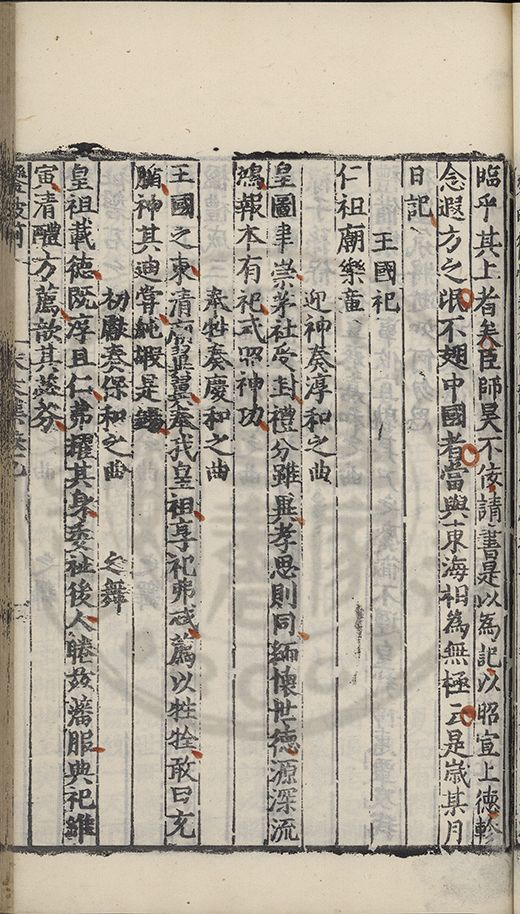 臨乎其上者矣臣師昊不佞請書是以為記以昭宣上德軫
念遐方之氓不翅中國者當與東海相為無極云是歲某月
日記
王國祀
仁祖廟樂章
迎神奏淳和之曲
皇圖聿崇茅社受封禮分雖異孝思則同緬懷世德源深流
鴻報本有祀式昭神功
奉牲奏慶和之曲
王國之東清廟翼翼奉我皇祖享祀弗忒薦以牲牷敢曰充
腯神其迪嘗純嘏是錫
初獻奏保和之曲　之舞
皇祖載德既淳且仁弗耀其身委祉後人賸茲藩服典祀維
寅清醴方薦歆其苾芬